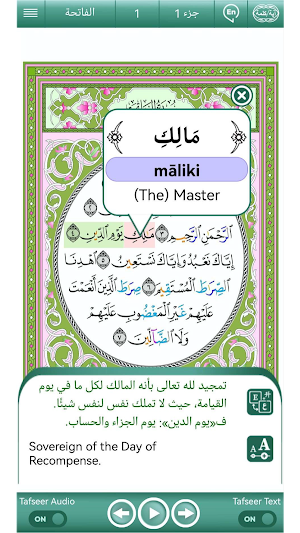 الفاتحة
1
جزء 1
En
مَالِكِ
māliki
(The) Master
الرَّحْمَٰنِ الرَّحِيمِ ٣ مَٰلِكِ يَوْمِ الدِّينِ ٤
إِيَّاكَ نَعْبُدُ وَإِيَّاكَ نَسْتَعِينُ ٥ اهْدِنَا
الصِّرَٰطَ الْمُسْتَقِيمَ ٦ صِرَٰطَ الَّذِينَ أَنْعَمْتَ
عَلَيْهِمْ غَيْرِ الْمَغْضُوبِ عَلَيْهِمْ
وَلَا الضَّالِّينَ ٧
تمجيد لله تعالى بأنه المالك لكل ما في يوم
القيامة، حيث لا تملك نفس لنفس شيئًا.
فـ«يوم الدين»: يوم الجزاء والحساب.
Sovereign of the Day of
Recompense.
Tafseer Audio
Tafseer Text
ON
ON